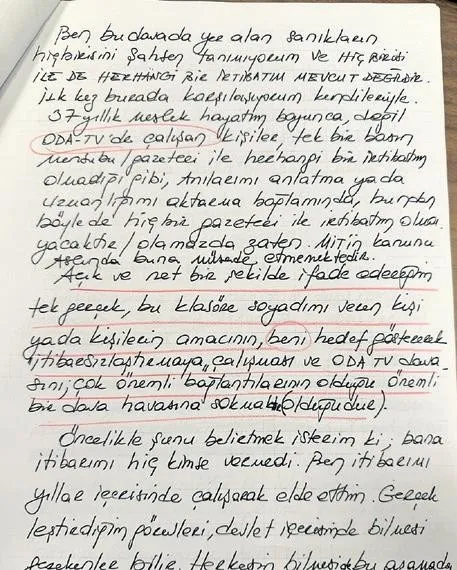 Ben bu davada yer alan sanıkların
hiçbirisini şahsen tanımıyorum ve HİÇ BİRİSİ
İLE DE HERHANGİ BİR İRTİBATIM MEVCUT DEĞİLDİR.
İlk kez burada karşılaşıyorum kendileriyle.
37 yıllık meslek hayatım boyunca, değil
ODA-TV'de çalışan kişiler, tek bir basın
mensubu/gazeteci ile herhangi bir irtibatım
olmadığı gibi, Anılarımı anlatma yada
uzmanlığımı aktarma bağlamında, bundan
böylede hiçbir gazeteci ile irtibatım olma-
yacaktır/olamazda zaten. MİT'in kanunu
Aslında buna müsade etmemektedir.
Açık ve net bir şekilde ifade edeceğim
tek gerçek, bu klasöre soyadımı veren kişi
yada kişilerin amacının, beni hedef göstererek
itibarsızlaştırmaya çalışması ve ODA TV dava-
sını, çok önemli bağlantılarının olduğu önemli
bir dava havasına sokmak (olduğudur).
Öncelikle şunu belirtmek isterim ki, bana
itibarımı hiç kimse vermedi. Ben itibarımı
yıllar içerisinde çalışarak elde ettim. Gerçek
leştirdiğim görevleri, devlet içerisinde bilmesi
gerekenler bilir. Herkesin bilmeside bu aşamada